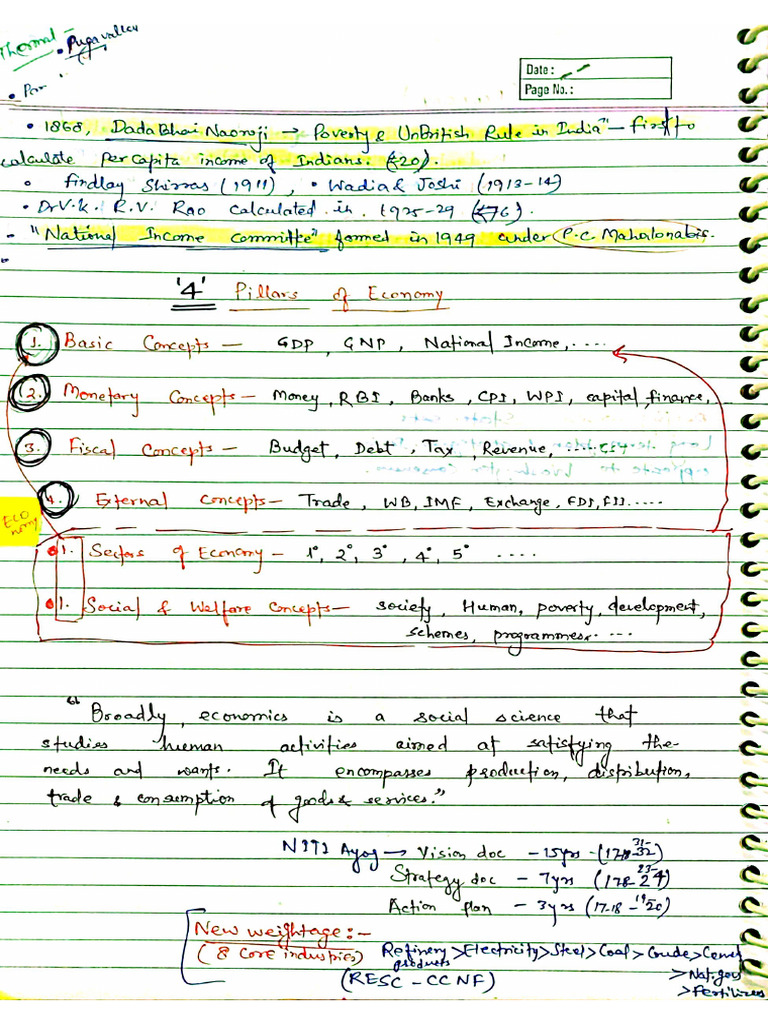 Thermal -
• Puga valley
• Par
Date :
Page No. :
• 1868, DadaBhai Naoroji → Poverty & UnBritish Rule in India" - first to
calculate Per Capita income of Indians. (₹20).
• Findlay Shirras (1911), • Wadia & Joshi (1913-14)
• Dr V.K. R.V. Rao calculated in 1925-29 (₹76).
- "National Income Committe" formed in 1949 under P.C. Mahalonabis.
'4' Pillars of Economy
1. Basic Concepts - GDP, GNP, National Income, ....
2. Monetary Concepts - Money, RBI, Banks, CPI, WPI, capital, finance, ...
3. Fiscal Concepts - Budget, Debt, Tax, Revenue, .....
4. External Concepts - Trade, WB, IMF, Exchange, FDI, FII.....
ECO
nomy
1. Sectors of Economy - 1°, 2°, 3°, 4°, 5° ....
1. Social & Welfare Concepts - society, Human, poverty, development,
schemes, programmes.....
"Broadly, economics is a social science that
studies human activities aimed at satisfying the
needs and wants. It encompasses production, distribution,
trade & consumption of goods & services."
NITI Ayog → Vision doc - 15yrs - (17-18 - 31-32)
Strategy doc - 7yrs (17-18 - 23-24)
Action plan - 3yrs (17-18 - 19-20)
New weightage:-
(8 Core industries) Refinery products > Electricity > Steel > Coal > Crude > Cement
> Nat. gas
(RESC - CCNF) > Fertilizers